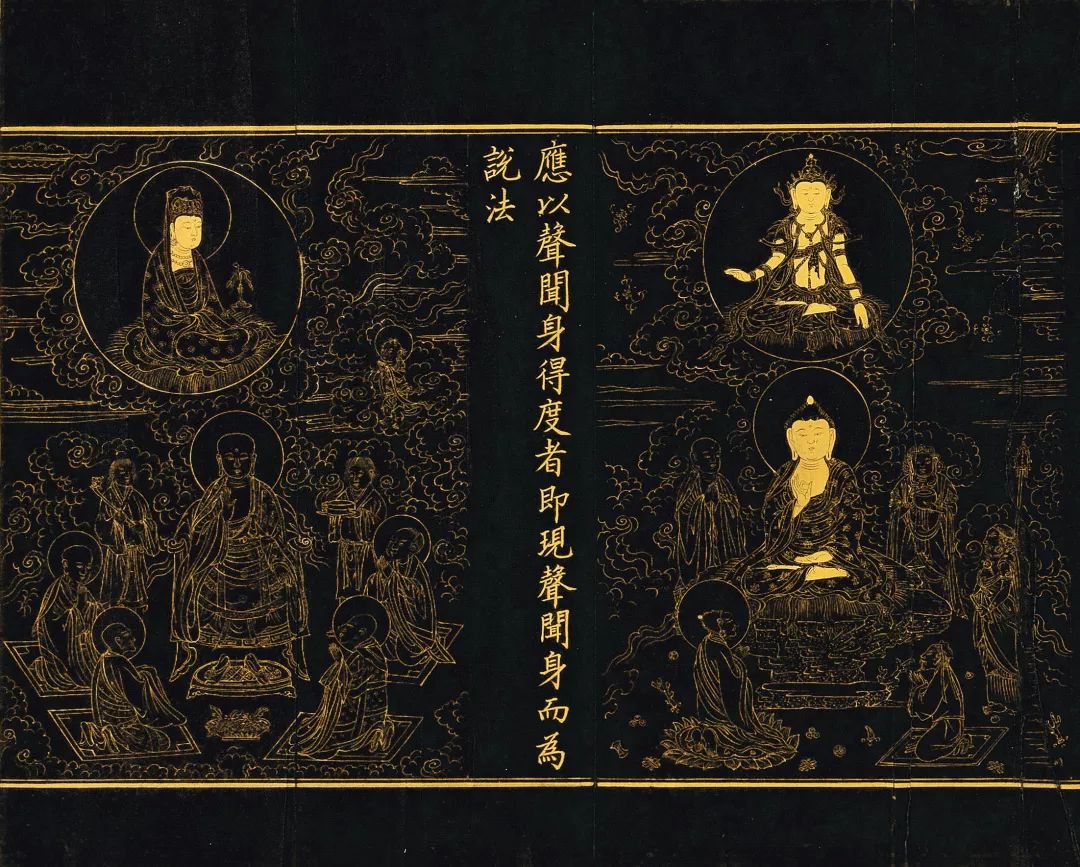 應以聲聞身得度者即現聲聞身而為
說法